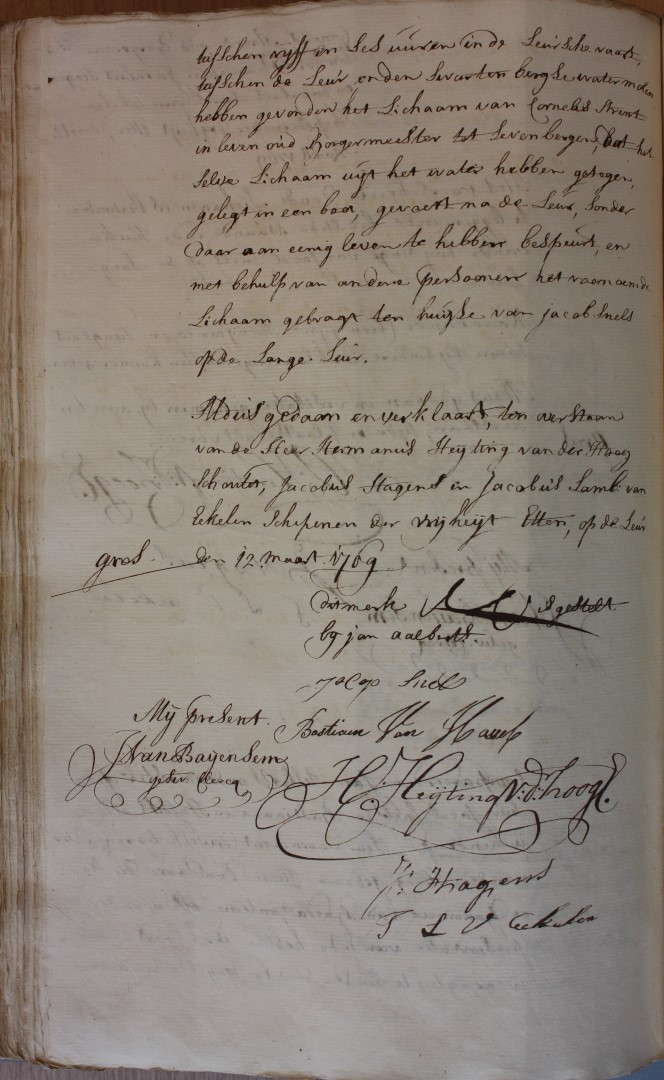 tusschen vyff en ses uuren in de Leursche vaart,
tusschen de Leur, en den Swartenbergse watermolen
hebben gevonden het Lichaam van Cornelis
in leven oud Borgermeester tot Sevenbergen, dat het
selve Lichaam uijt het water hebben getogen,
gelegt in een boot, gevoert na de Leur, sonder
daar aan eenig leven te hebben bespeurt, en
met behulp van andere persoonen het voornoemde
Lichaam gebragt ten huijse van Jacob Snels
op de Lange Leur.
Aldus gedaan en verklaart, ten overstaan
van de Heer Hermanus Heyting van der Hoog
Schoutet, Jacobus Hagens en Jacobus Lamb: van
Eekelen Schepenen der vrijheijt Etten, op de Leur
gros. den 12 maart 1769
dit merk is gestelt
by jan aalberts.
Jacop Snels
Mij Present. Bastiaen Van
J Van Bayensem
geswr. Clercq
H: Heijting V: d: Hoog.
J: Hagens
J L V Eekelen